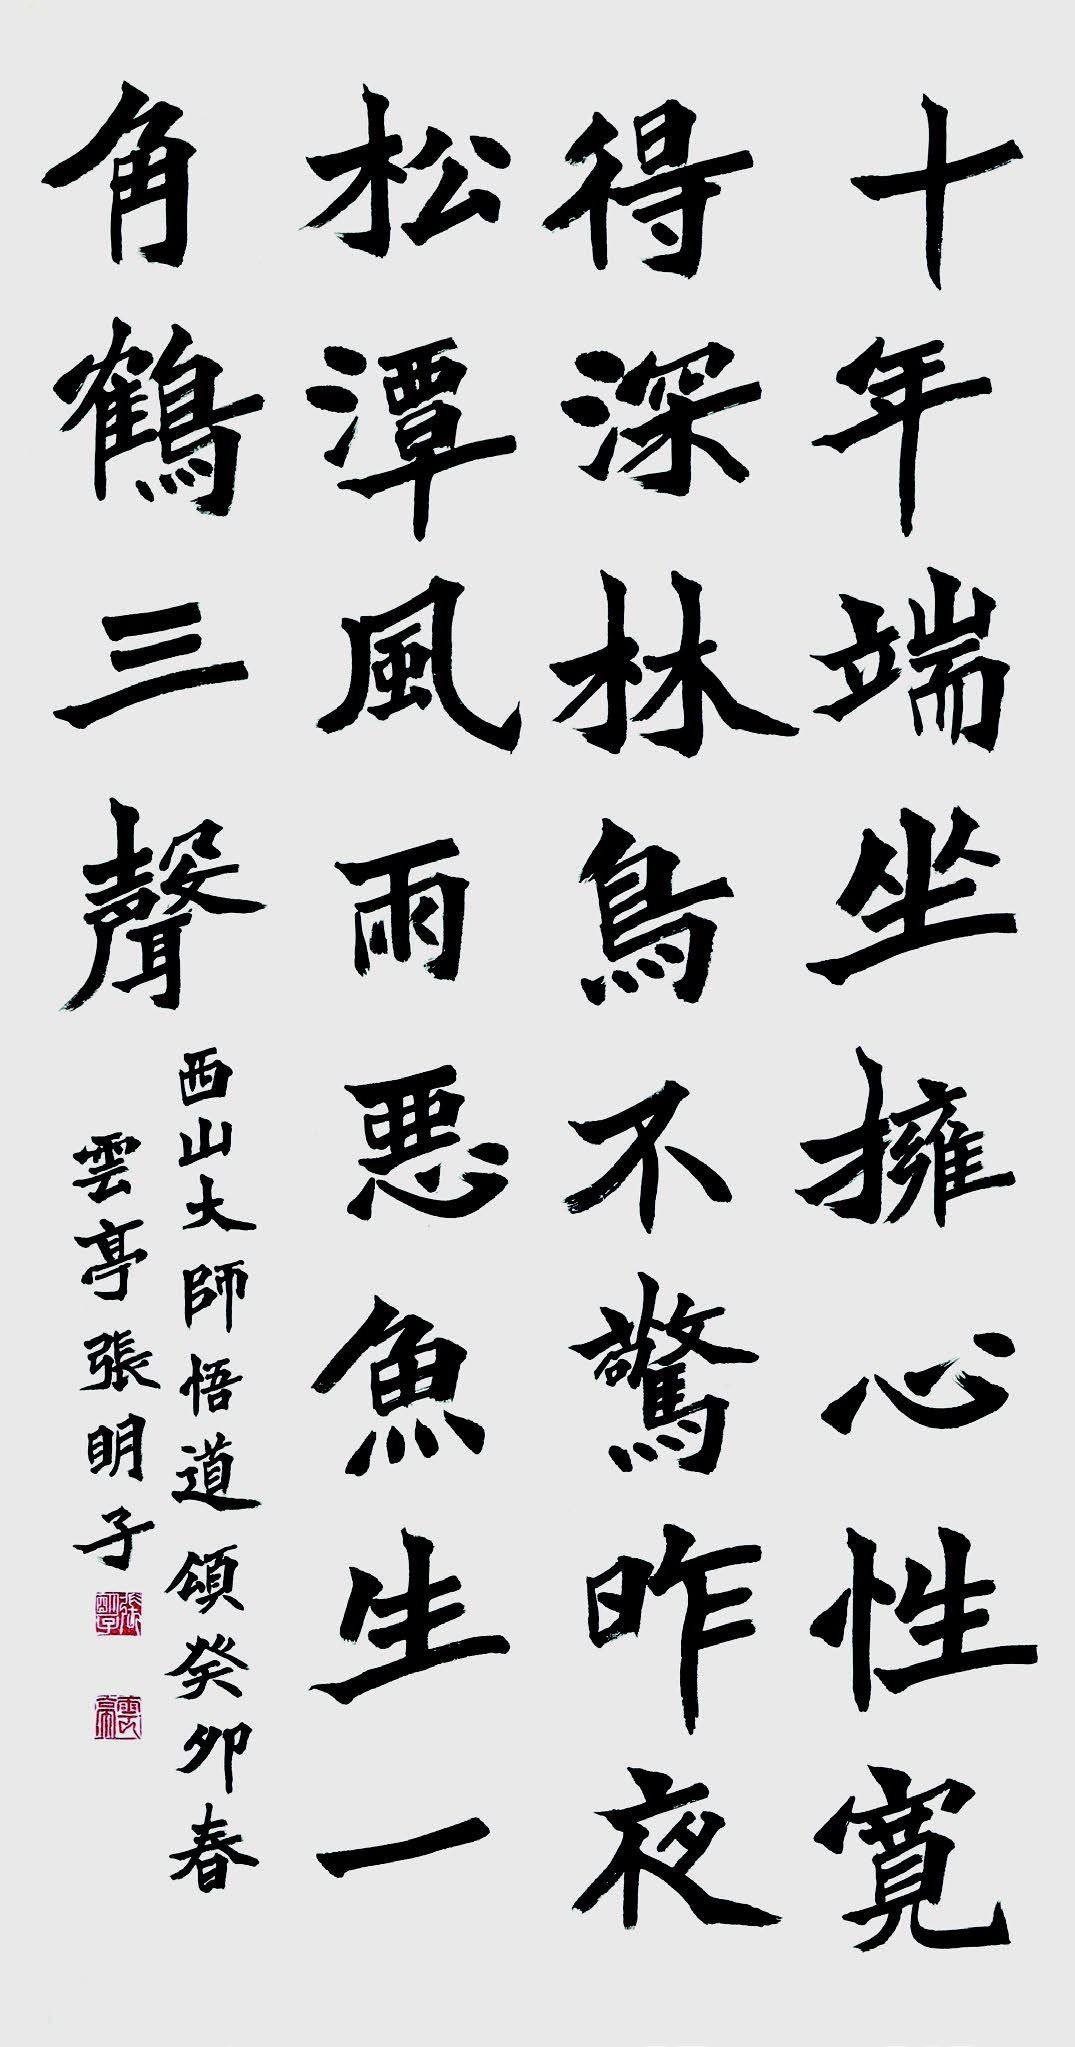 十年端坐擁心性寬
得深林鳥不驚昨夜
松潭風雨悪魚生一
角鶴三聲
西山大師悟道頌癸卯春
雲亭張明子
張明子
雲亭